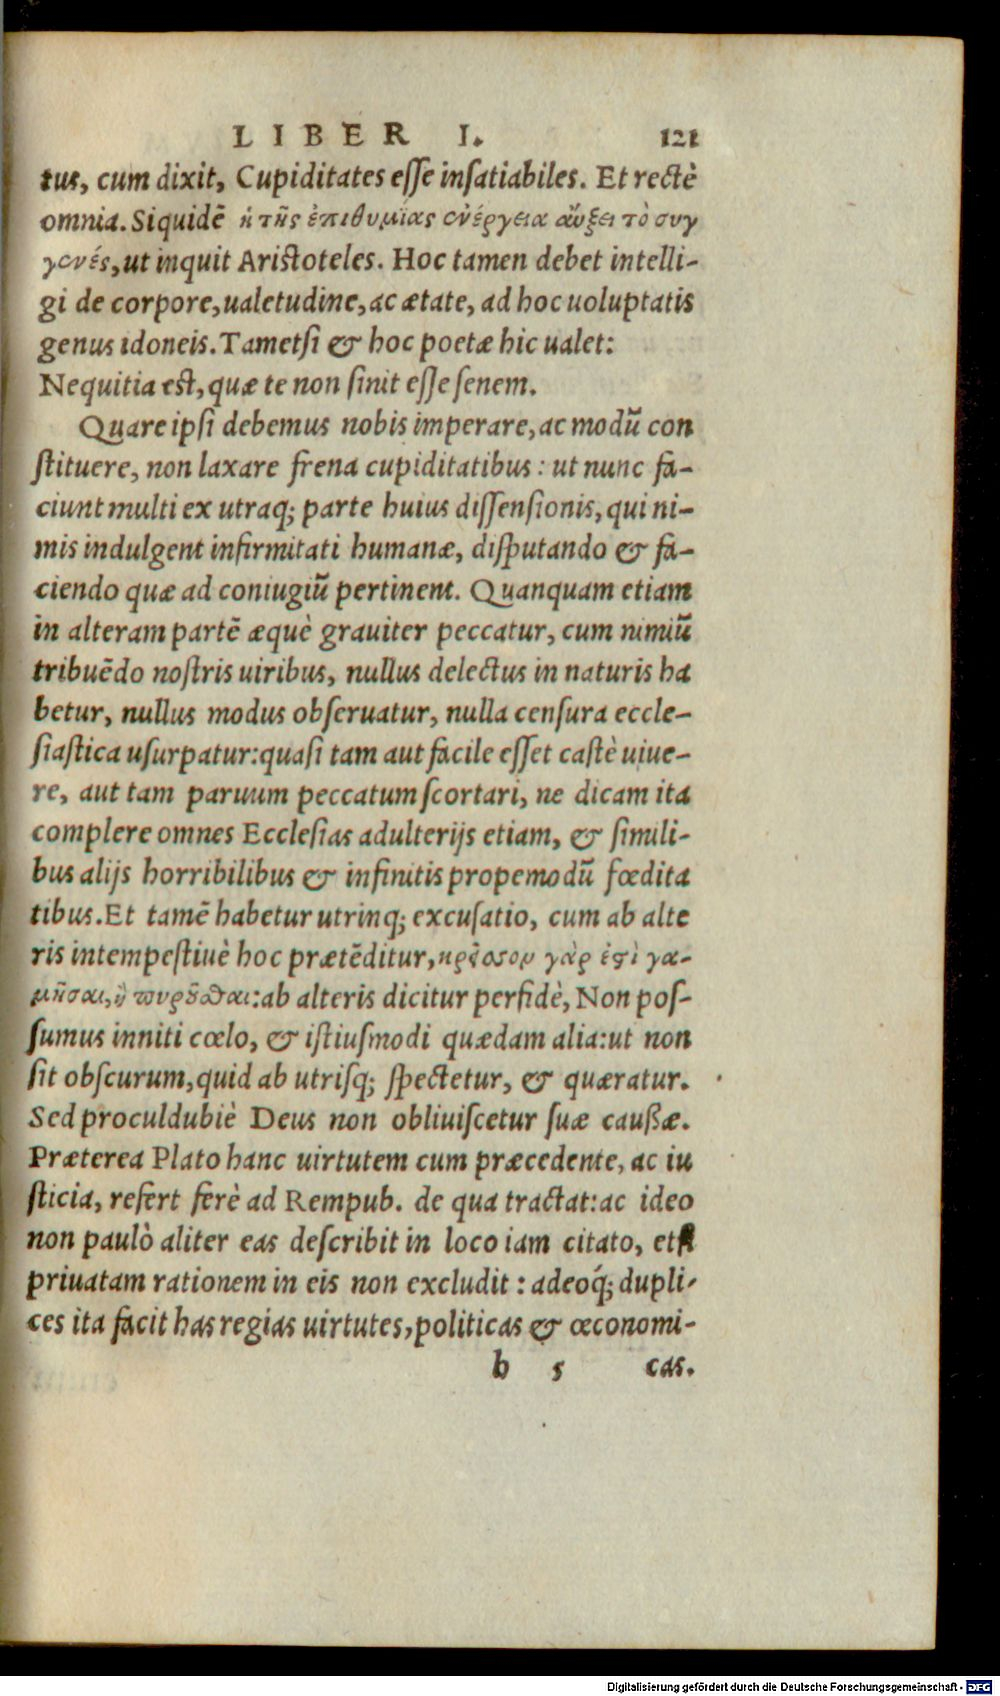 LIBER I. 121
tus, cum dixit, Cupiditates esse insatiabiles. Et rectè
omnia. Siquidē ἡ τῆς ἐπιθυμίας ἐνέργεια αὔξει τὸ συγ
γενές, ut inquit Aristoteles. Hoc tamen debet intelli-
gi de corpore, ualetudine, ac ætate, ad hoc uoluptatis
genus idoneis. Tametsi & hoc poetæ hic ualet:
Nequitia est, quæ te non sinit esse senem.
Quare ipsi debemus nobis imperare, ac modū con
stituere, non laxare frena cupiditatibus: ut nunc fa-
ciunt multi ex utraq; parte huius dissensionis, qui ni-
mis indulgent infirmitati humanæ, disputando & fa-
ciendo quæ ad coniugiū pertinent. Quanquam etiam
in alteram partē æquè grauiter peccatur, cum nimiū
tribuēdo nostris uiribus, nullus delectus in naturis ha
betur, nullus modus obseruatur, nulla censura eccle-
siastica usurpatur: quasi tam aut facile esset castè uiue-
re, aut tam paruum peccatum scortari, ne dicam ita
complere omnes Ecclesias adulterijs etiam, & simili-
bus alijs horribilibus & infinitis propemodū fœdita
tibus. Et tamē habetur utrinq; excusatio, cum ab alte
ris intempestiuè hoc prætēditur, κρεῖσσον γάρ ἐστι γα-
μῆσαι, ἢ πυροῦσθαι: ab alteris dicitur perfidè, Non pos-
sumus inniti cœlo, & istiusmodi quædam alia: ut non
sit obscurum, quid ab utrisq; spectetur, & quæratur.
Sed proculdubiè Deus non obliuiscetur suæ caussæ.
Præterea Plato hanc uirtutem cum præcedente, ac iu
sticia, refert ferè ad Rempub. de qua tractat: ac ideo
non paulò aliter eas describit in loco iam citato, etsi
priuatam rationem in eis non excludit: adeoq́; dupli-
ces ita facit has regias uirtutes, politicas & œconomi-
b 5 cas.
Digitalisierung gefördert durch die Deutsche Forschungsgemeinschaft - DFG